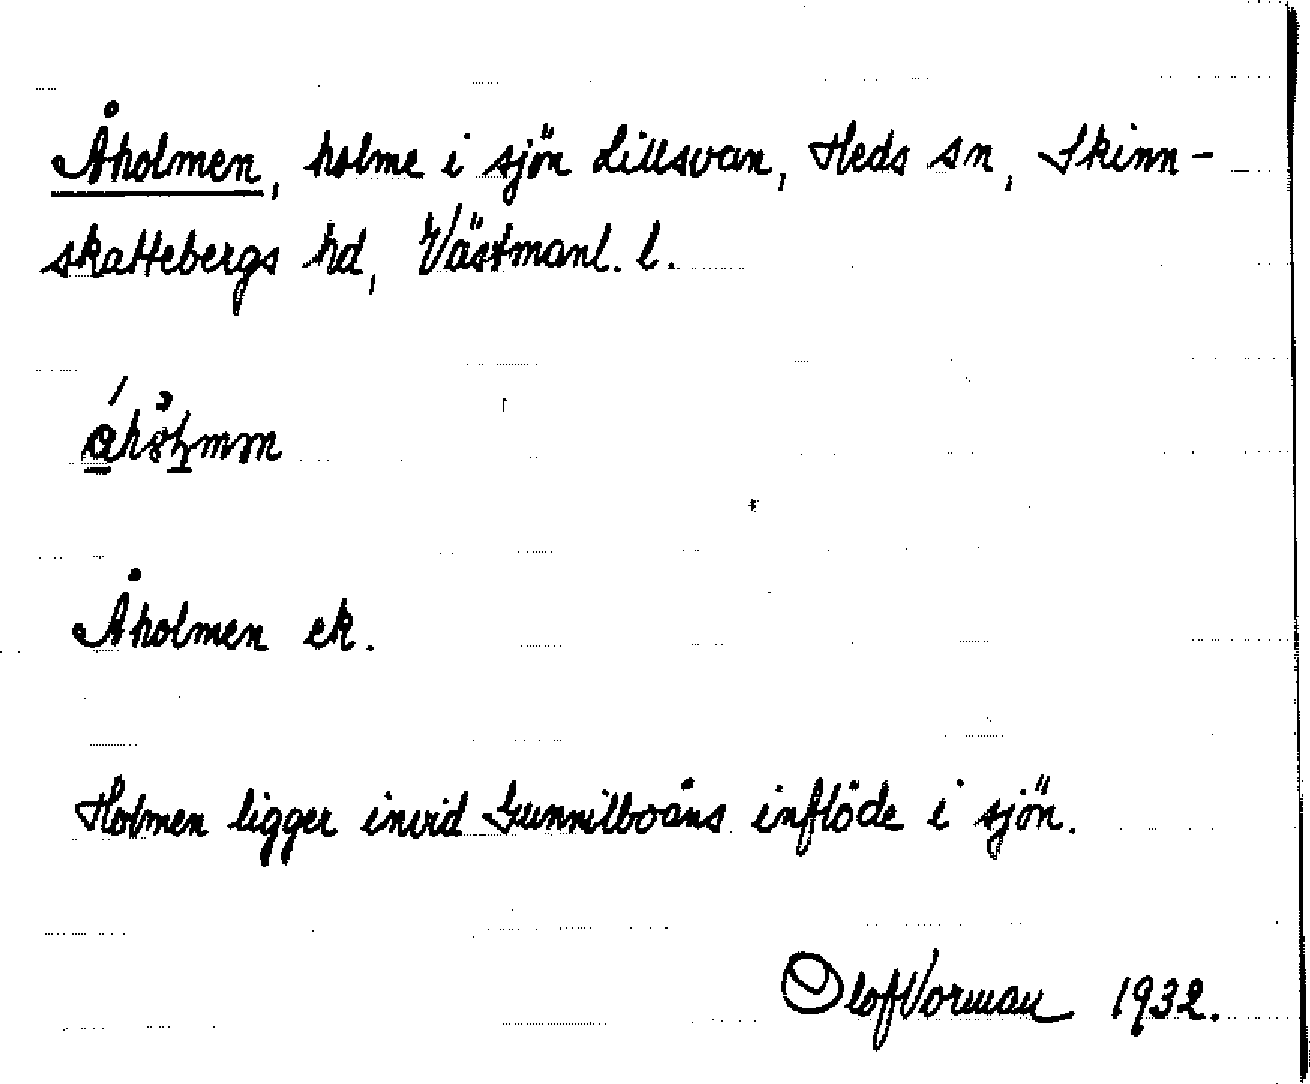 Åholmen, holme i sjön Lillsvan, Heds sn, Skinn-
skattebergs hd, Västmanl. l.
Åholmen ek.
Holmen ligger invid Gunnilboåns inflöde i sjön.
Olof Vorman 1932.